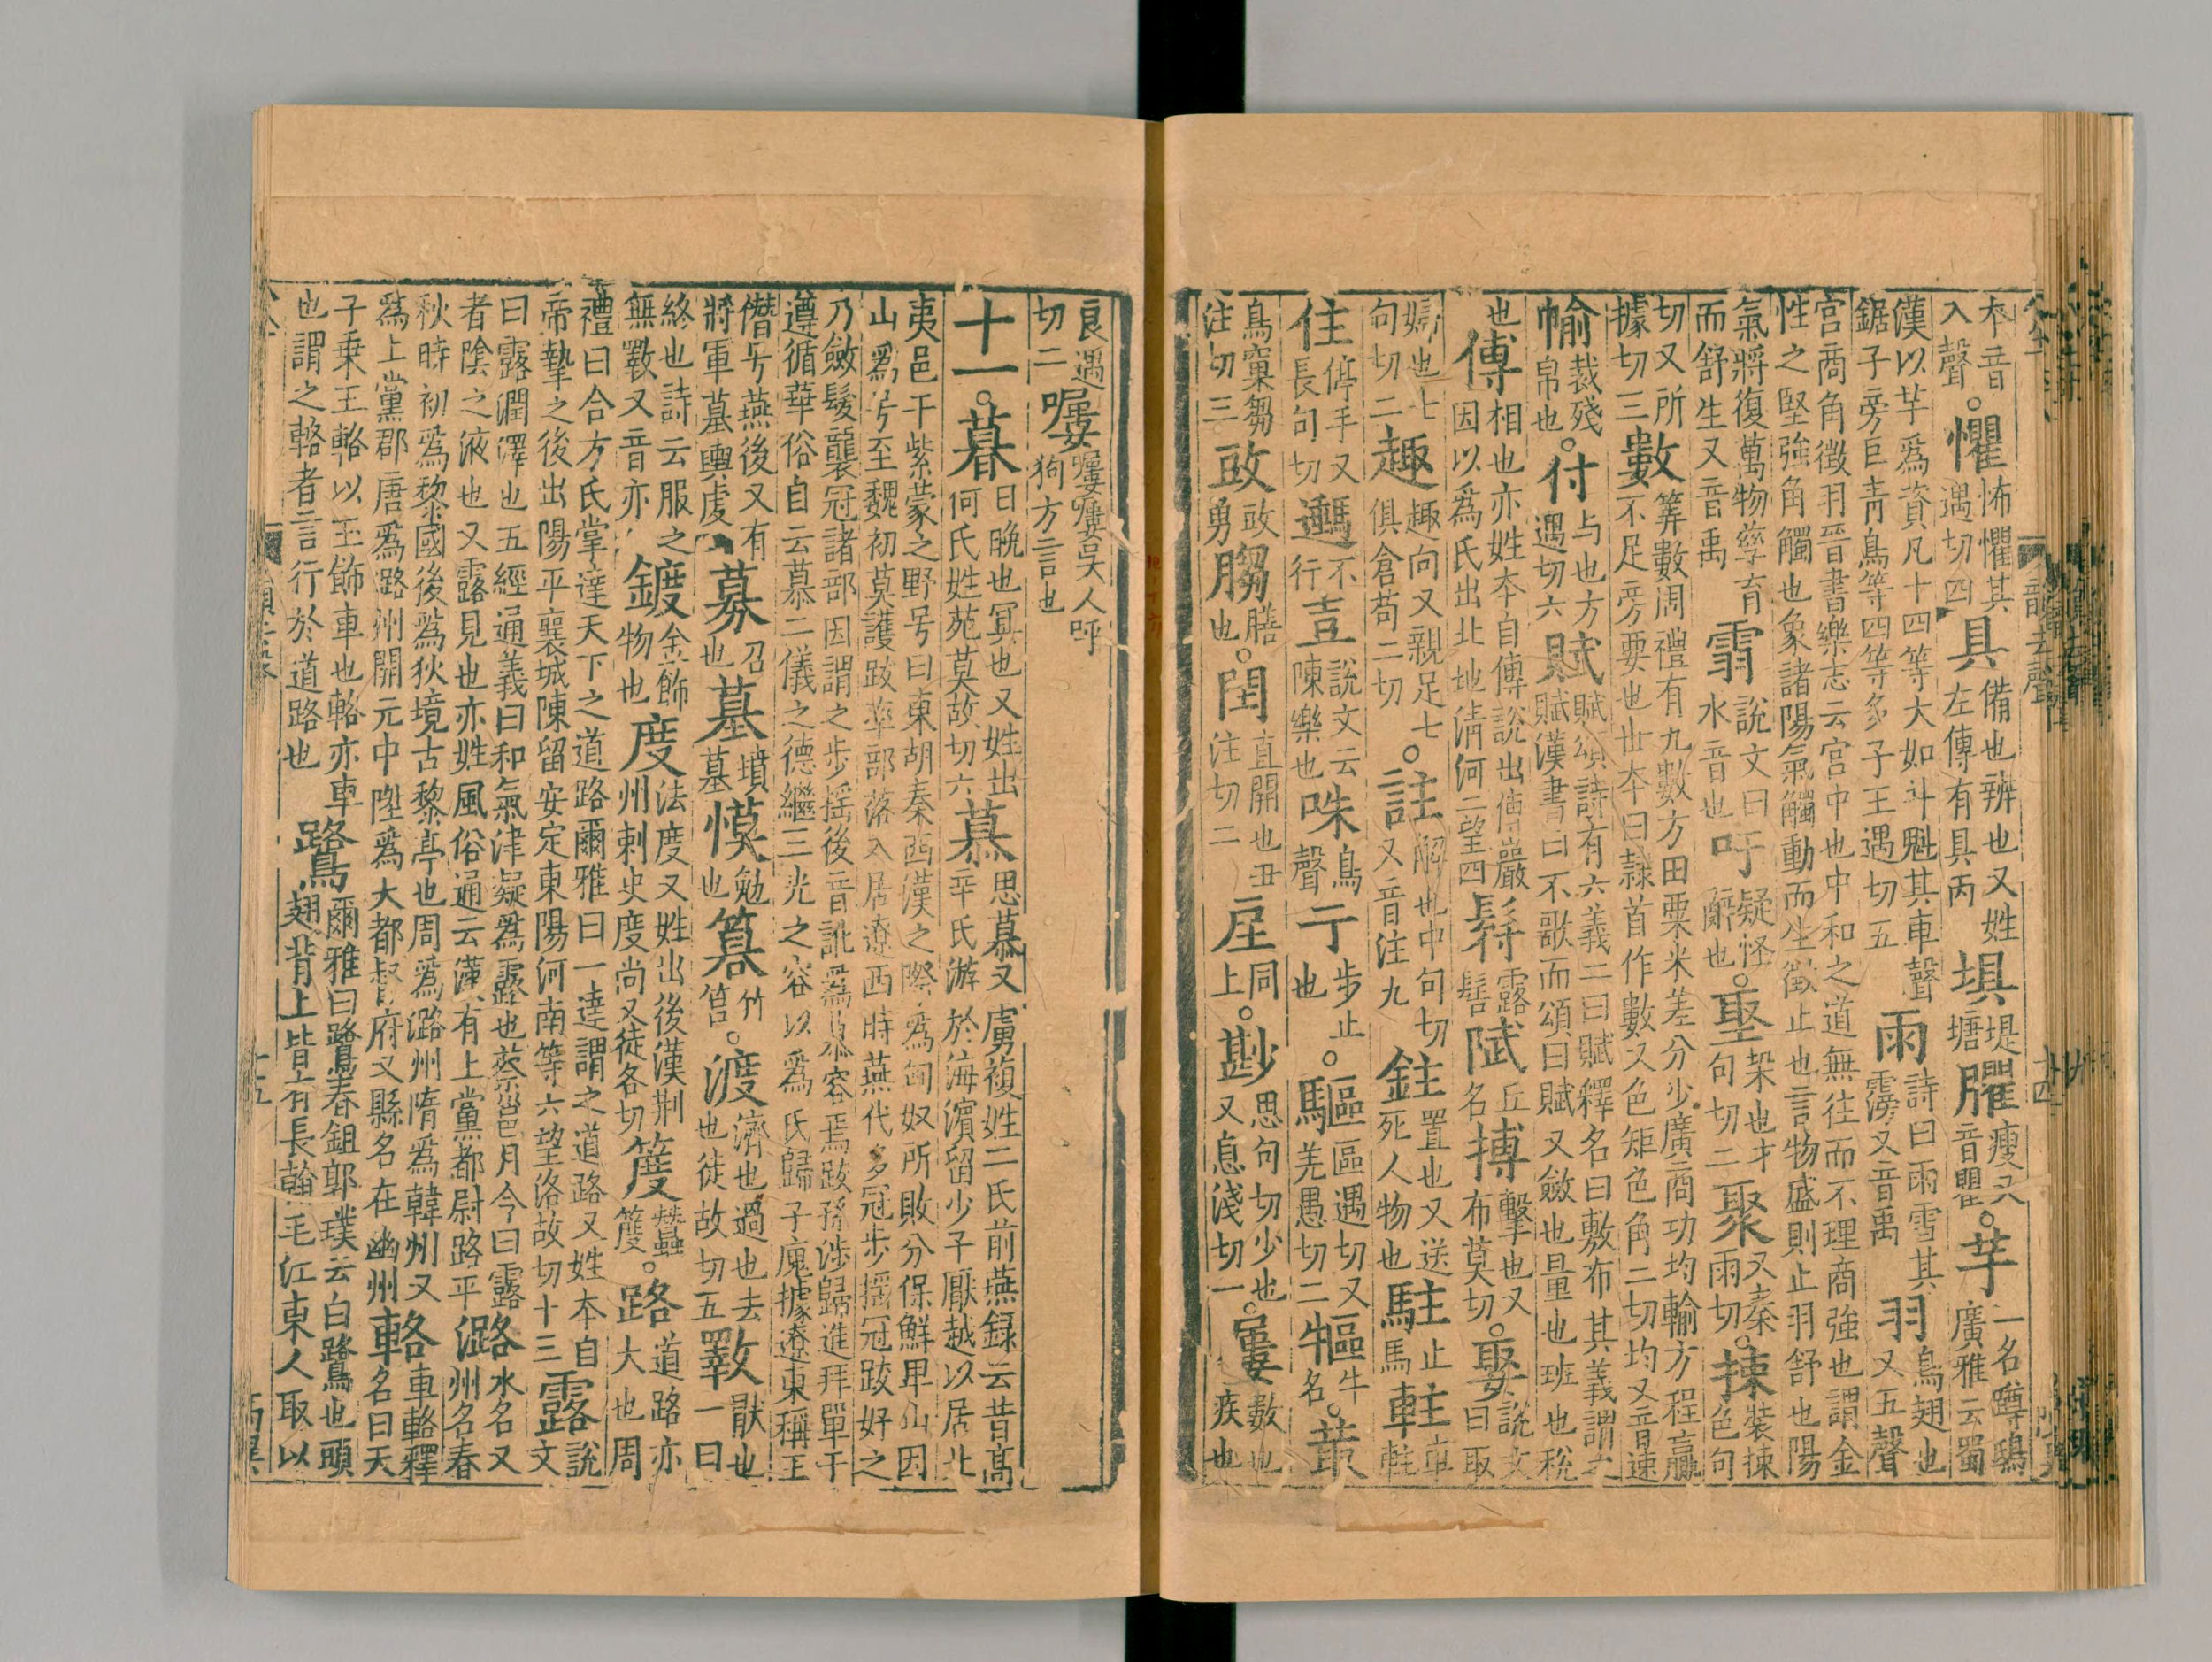 本音入聲。懼怖懼其遇切四具備也辨也又姓左傳有具丙埧堤塘臞瘦又音瞿。芋一名蹲鴟廣雅云蜀
漢以芋爲資凡十四等大如斗魁其車聲鋸子旁巨青鳥等四等多子王遇切五雨詩曰雨雪其霶又音禹羽鳥翅也又五聲
宫商角徵羽晉書樂志云宫中也中和之道無往而不理商強也謂金性之堅強角觸也象諸陽氣觸動而生徵止也言物盛則止羽舒也陽
氣將復萬物孳育而舒生又音禹䨞說文曰水音也吁疑怪辭也。堅埾也才句切二聚又秦雨切。捒裝捒色句
切又所據切三數筭數周禮有九數方田粟米差分少廣商功均輸方程贏不足旁要也世本曰隷首作數又色矩色角二切㘬又音速
㡏裁殘帛也。付与也方遇切六賦賦頌詩有六義二曰賦釋名曰敷布其義謂之賦漢書曰不歌而頌曰賦又斂也量也班也稅
也傅相也亦姓本自傅說出傅巖因以爲氏出北地清河二望四䯱露髻䟮丘名搏擊也又布莫切。娶說文曰取
婦也七句切二趣趣向又親足七俱倉苟二切。註解也中句切又音注九鉒置也又送死人物也駐止馬軴車軴
住停手又長句切䮱不行壴說文云陳樂也咮鳥聲亍步止也。驅區遇切又羌愚切二㭠牛名。菆
鳥窠芻注切三䟦䟦勇䐢膳也。閏直開也丑注切二㡹同上。尠思句切少也又息淺切一。屢數也疾也
良遇切二㗕㗕㗕吴人呼狗方言也
十一。暮日晚也冥也又姓出何氏姓苑莫故切六慕思慕又虜複姓二氏前燕録云昔高辛氏游於海濱留少子厭越以居北
夷邑于紫蒙之野号曰東胡秦西漢之際爲匈奴所敗分保鮮卑山因山爲号至魏初莫護跋率部落入居遼西時燕代多冠步摇冠跋好之
乃斂髮襲冠諸部因謂之步摇後音訛爲慕容焉跋孫涉歸進拜單于遵循華俗自云慕二儀之德繼三光之容以爲氏歸子廆據遼東稱王
僭号燕後又有將軍慕輿虔募召也墓墳墓慔勉也䈊竹筥。渡濟也過也去也徒故切五斁猒也一曰
終也詩云服之無斁又音亦鍍金飾物也度法度又姓出後漢荆州刺史度尚又徒各切䈲䇯。路道路亦大也周
禮曰合方氏掌達天下之道路爾雅曰一達謂之道路又姓本自帝摯之後出陽平襄城陳留安定東陽河南等六望洛故切十三露說文
曰露潤澤也五經通義曰和氣津凝爲露也蔡邕月令曰露者陰之液也又露見也亦姓風俗通云漢有上黨都尉路平潞水名又州名春
秋時初爲黎國後爲狄境古黎亭也周爲潞州隋爲韓州又爲上黨郡唐爲潞州開元中陞爲大都督府又縣名在幽州輅車輅釋名曰天
子乗王輅以玉飾車也輅亦車也謂之輅者言行於道路也鷺爾雅曰鷺春鉏郭璞云白鷺也頭翅背上皆有長翰毛江東人取以